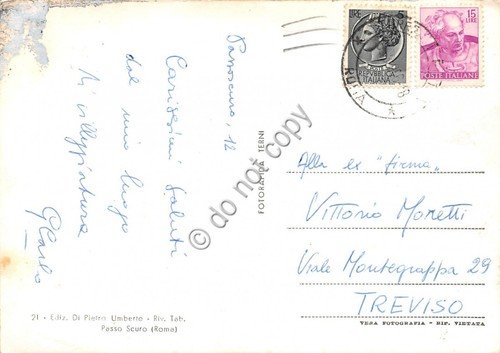 Passoscuro, 12
Carissimi saluti
dal mio luogo
di villeggiatura
GCarlo
FOTOGRAFIA TERNI
21 - Ediz. Di Pietro Umberto - Riv. Tab.
Passo Scuro (Roma)
15
LIRE
POSTE ITALIANE
REPVBBLICA
ITALIANA
Alla ex "firma"
Vittorio Moretti
Viale Montegrappa 29
TREVISO
VERA FOTOGRAFIA - RIP. VIETATA
© do not copy